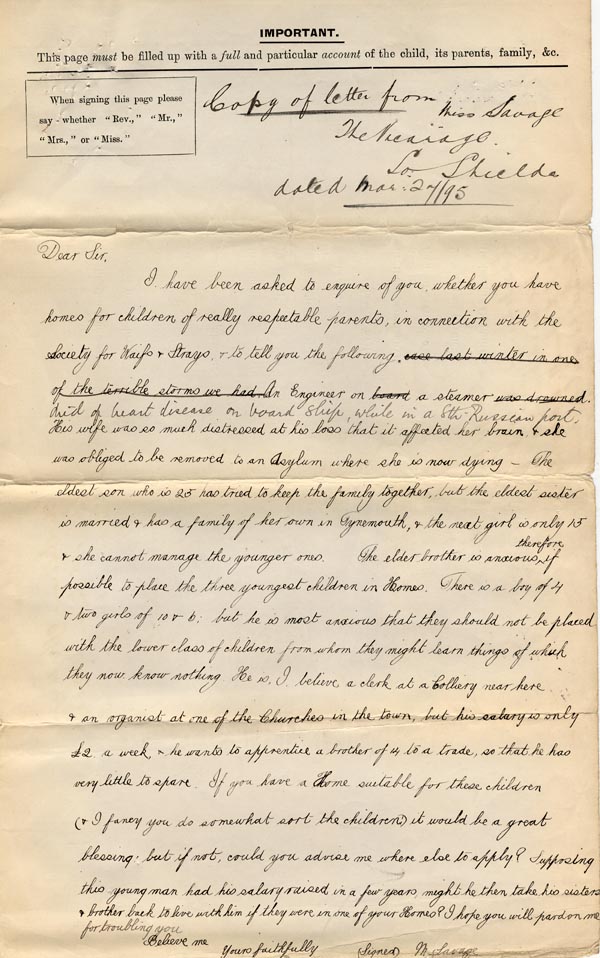 IMPORTANT.
This page must be filled up with a full and particular account of the child, its parents, family, &c.
When signing this page please
say whether "Rev.," "Mr.,"
"Mrs.," or "Miss."
Copy of letter from Miss Savage
The Vicarage.
So. Shields
dated Mar: 27/95
Dear Sir,
I have been asked to enquire of you, whether you have
homes for children of really respectable parents, in connection with the
Society for Waifs & Strays, & to tell you the following case last winter in one
of the terrible storms we had An Engineer on board a steamer was drowned.
died of heart disease on board ship, while in a Sth. Russian port.
His wife was so much distressed at his loss that it affected her brain & she
was obliged to be removed to an Asylum where she is now dying – The
eldest son who is 25 has tried to keep the family together, but the eldest sister
is married & has a family of her own in Tynemouth, & the next girl is only 15
& she cannot manage the younger ones. The elder brother is anxious, therefore, if
possible to place the three youngest children in Homes. There is a boy of 4
& two girls of 10 & 6: but he is most anxious that they should not be placed
with the lower class of children from whom they might learn things of which
they now know nothing He is, I believe a clerk at a Colliery near here
& an organist at one of the Churches in the town, but his salary is only
£2 a week, & he wants to apprentice a brother of 14 to a trade, so that he has
very little to spare. If you have a Home suitable for these children
(& I fancy you do somewhat sort the children,) it would be a great
blessing: but if not, could you advise me where else to apply? Supposing
this young man had his salary raised in a few years, might he then take his sisters
& brother back to live with him if they were in one of your Homes? I hope you will pardon me
for troubling you
Believe me
Yours faithfully (Signed) M. Savage